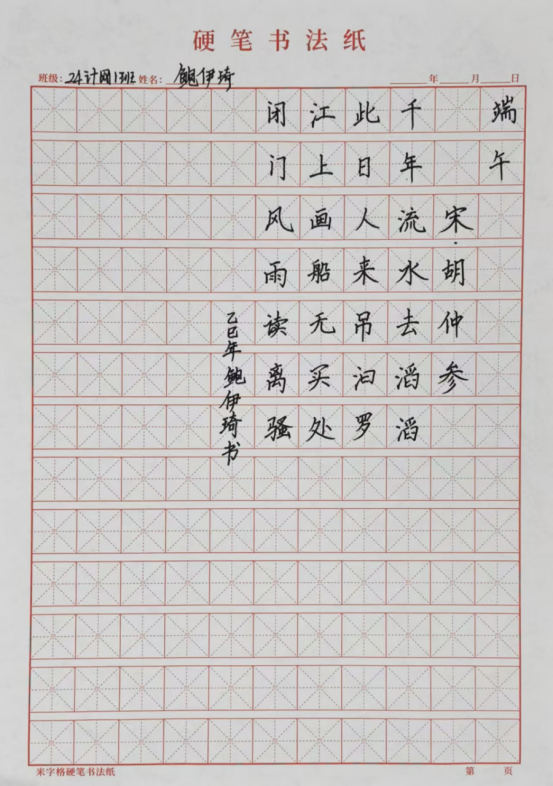 硬笔书法纸
班级：24计网1班 姓名：鲍伊琦 年 月 日
端午
宋·胡仲参
千年流水去滔滔
此日人来吊汨罗
江上画船无买处
闭门风雨读离骚
乙巳年鲍伊琦书
米字格硬笔书法纸 第 页